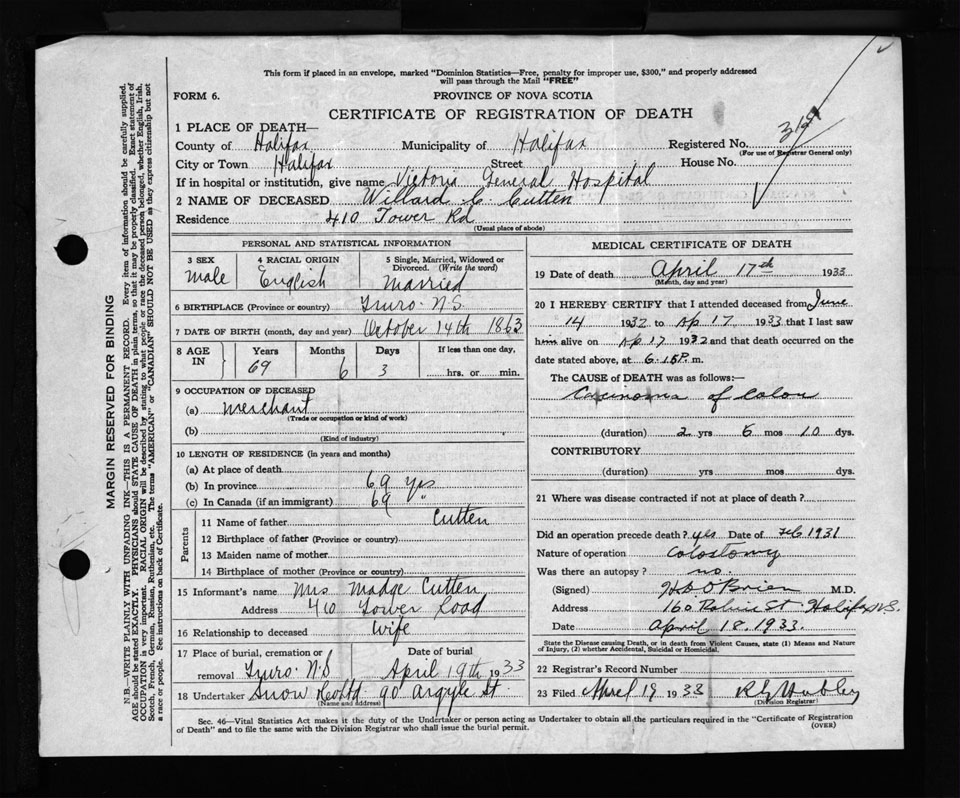 This form if placed in an envelope, marked "Dominion Statistics—Free, penalty for improper use, $300," and properly addressed
will pass through the Mail "FREE"
FORM 6.
PROVINCE OF NOVA SCOTIA
CERTIFICATE OF REGISTRATION OF DEATH
1 PLACE OF DEATH—
County of Halifax Municipality of Halifax Registered No.
(For use of Registrar General only)
City or Town Halifax Street House No.
If in hospital or institution, give name Victoria General Hospital
2 NAME OF DECEASED Willard C. Cutten
Residence 410 Tower Rd
(Usual place of abode)
PERSONAL AND STATISTICAL INFORMATION
3 SEX 4 RACIAL ORIGIN 5 Single, Married, Widowed or
Divorced. (Write the word)
male English Married
6 BIRTHPLACE (Province or country) Truro. N.S.
7 DATE OF BIRTH (month, day and year) October 14th 1863
8 AGE IN Years Months Days If less than one day,
69 6 3 hrs. or min.
9 OCCUPATION OF DECEASED
(a) merchant
(Trade or occupation or kind of work)
(b)
(Kind of industry)
10 LENGTH OF RESIDENCE (in years and months)
(a) At place of death
(b) In province 69 yrs
(c) In Canada (if an immigrant) 69 "
Parents
11 Name of father Cutten
12 Birthplace of father (Province or country)
13 Maiden name of mother
14 Birthplace of mother (Province or country)
15 Informant's name Mrs Madge Cutten
Address 410 Tower Road
16 Relationship to deceased wife
17 Place of burial, cremation or Date of burial
removal Truro N.S April 19th 1933
18 Undertaker Snow & Co Ltd 90 Argyle St.
(Name and address)
MEDICAL CERTIFICATE OF DEATH
19 Date of death April 17th 1933
(Month, day and year)
20 I HEREBY CERTIFY that I attended deceased from June
14 1932 to Ap 17 1933 that I last saw
him alive on Ap 17 1932 and that death occurred on the
date stated above, at 6.15 P. m.
The CAUSE of DEATH was as follows:—
Carcinoma of Colon
(duration) 2 yrs 6 mos 10 dys.
CONTRIBUTORY
(duration) yrs mos dys.
21 Where was disease contracted if not at place of death?
Did an operation precede death? yes Date of Feb 1931
Nature of operation Colostomy
Was there an autopsy? no.
(Signed) O'Brien M.D.
Address 160 St. Halifax N.S.
Date April 18. 1933.
State the Disease causing Death, or in death from Violent Causes, state (1) Means and Nature
of Injury, (2) whether Accidental, Suicidal or Homicidal.
22 Registrar's Record Number
23 Filed April 19 1933
(Division Registrar)
Sec. 46—Vital Statistics Act makes it the duty of the Undertaker or person acting as Undertaker to obtain all the particulars required in the "Certificate of Registration
of Death" and to file the same with the Division Registrar who shall issue the burial permit.
(OVER)
MARGIN RESERVED FOR BINDING
N.B.—WRITE PLAINLY WITH UNFADING INK—THIS IS A PERMANENT RECORD. Every item of information should be carefully supplied.
AGE should be stated EXACTLY. PHYSICIANS should STATE CAUSE OF DEATH in plain terms, so that it may be properly classified. Exact statement of
OCCUPATION is very important. RACIAL ORIGIN will be described by stating to what people or race the deceased person belonged, whether English, Irish,
Scotch, French, German, Russian, Ruthenian, etc. The terms "AMERICAN" or "CANADIAN" SHOULD NOT BE USED as they express citizenship but not
a race or people. See instructions on back of Certificate.